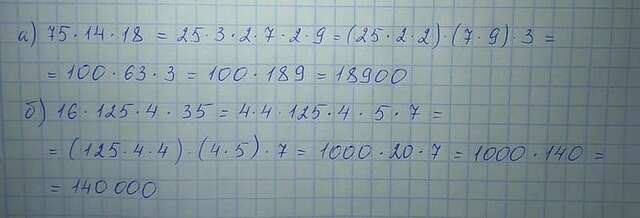 а) 75 · 14 · 18 = 25 · 3 · 2 · 7 · 2 · 9 = (25 · 2 · 2) · (7 · 9) · 3 =
= 100 · 63 · 3 = 100 · 189 = 18900
б) 16 · 125 · 4 · 35 = 4 · 4 · 125 · 4 · 5 · 7 =
= (125 · 4 · 4) · (4 · 5) · 7 = 1000 · 20 · 7 = 1000 · 140 =
= 140 000